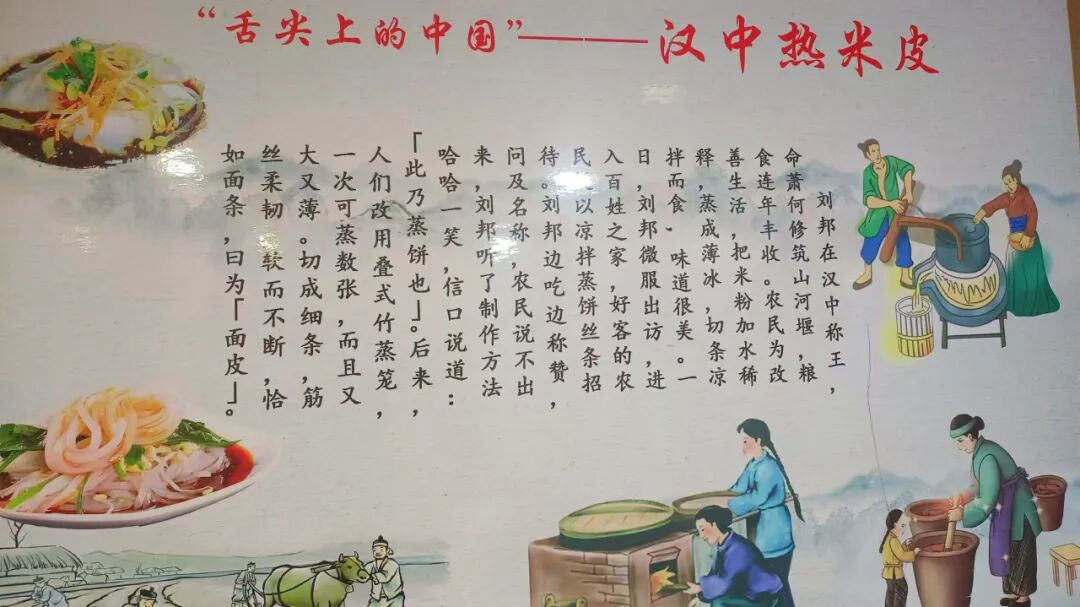 “舌尖上的中国”——汉中热米皮
刘邦在汉中称王，
命萧何修筑山河堰，粮
食连年丰收。农民为改
善生活，把米粉加水稀
释，蒸成薄冰，切条凉
拌而食，味道很美。一
日，刘邦微服出访，进
入百姓之家，好客的农
民以凉拌蒸饼丝条招
待。刘邦边吃边称赞，
问及名称，农民说不出
来，刘邦听了制作方法
哈哈一笑，信口说道：
「此乃蒸饼也」。后来，
人们改用叠式竹蒸笼，
一次可蒸数张，而且又
大又薄。切成细条，筋
丝柔韧，软而不断，恰
如面条，曰为「面皮」。